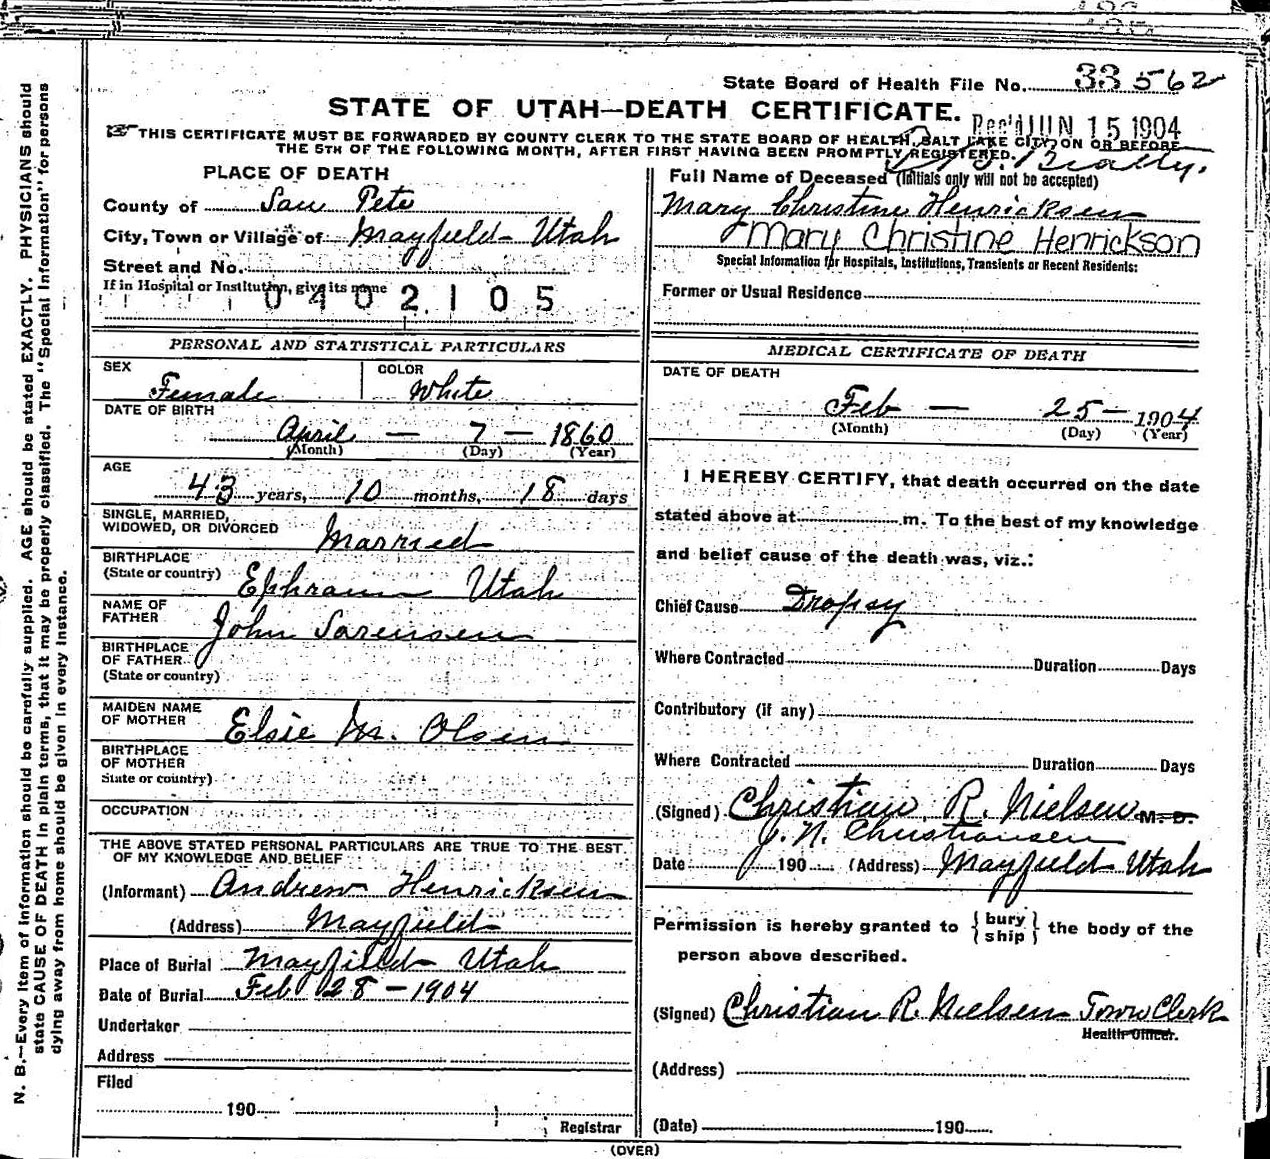 State Board of Health File No. 33562
STATE OF UTAH—DEATH CERTIFICATE.
Rec'd JUN 15 1904
THIS CERTIFICATE MUST BE FORWARDED BY COUNTY CLERK TO THE STATE BOARD OF HEALTH, SALT LAKE CITY, ON OR BEFORE
THE 5TH OF THE FOLLOWING MONTH, AFTER FIRST HAVING BEEN PROMPTLY REGISTERED.
PLACE OF DEATH
County of San Pete
City, Town or Village of Mayfield Utah
Street and No.
If in Hospital or Institution, give its name
0402105
Full Name of Deceased (Initials only will not be accepted)
Mary Christine Henricksen
Mary Christine Henrickson
Special Information for Hospitals, Institutions, Transients or Recent Residents:
Former or Usual Residence
PERSONAL AND STATISTICAL PARTICULARS
SEX Female COLOR White
DATE OF BIRTH
April — 7 — 1860
(Month) (Day) (Year)
AGE
43 years, 10 months, 18 days
SINGLE, MARRIED,
WIDOWED, OR DIVORCED Married
BIRTHPLACE
(State or country) Ephraim Utah
NAME OF
FATHER John Sorensen
BIRTHPLACE
OF FATHER
(State or country)
MAIDEN NAME
OF MOTHER Elsie M. Olsen
BIRTHPLACE
OF MOTHER
State or country)
OCCUPATION
THE ABOVE STATED PERSONAL PARTICULARS ARE TRUE TO THE BEST
OF MY KNOWLEDGE AND BELIEF
(Informant) Andrew Henricksen
(Address) Mayfield
Place of Burial Mayfield Utah
Date of Burial Feb 28 - 1904
Undertaker
Address
Filed
190
Registrar
MEDICAL CERTIFICATE OF DEATH
DATE OF DEATH
Feb — 25 — 1904
(Month) (Day) (Year)
I HEREBY CERTIFY, that death occurred on the date
stated above at m. To the best of my knowledge
and belief cause of the death was, viz.:
Chief Cause Dropsy
Where Contracted Duration Days
Contributory (if any)
Where Contracted Duration Days
(Signed) Christian R. Nielsen M. D.
J. N. Christiansen
Date 190 (Address) Mayfield Utah
Permission is hereby granted to { bury
ship } the body of the
person above described.
(Signed) Christian R. Nielsen Town Clerk
Health Officer.
(Address)
(Date) 190
(OVER)
N. B.—Every item of information should be carefully supplied. AGE should be stated EXACTLY. PHYSICIANS should
state CAUSE OF DEATH in plain terms, that it may be properly classified. The "Special Information" for persons
dying away from home should be given in every instance.